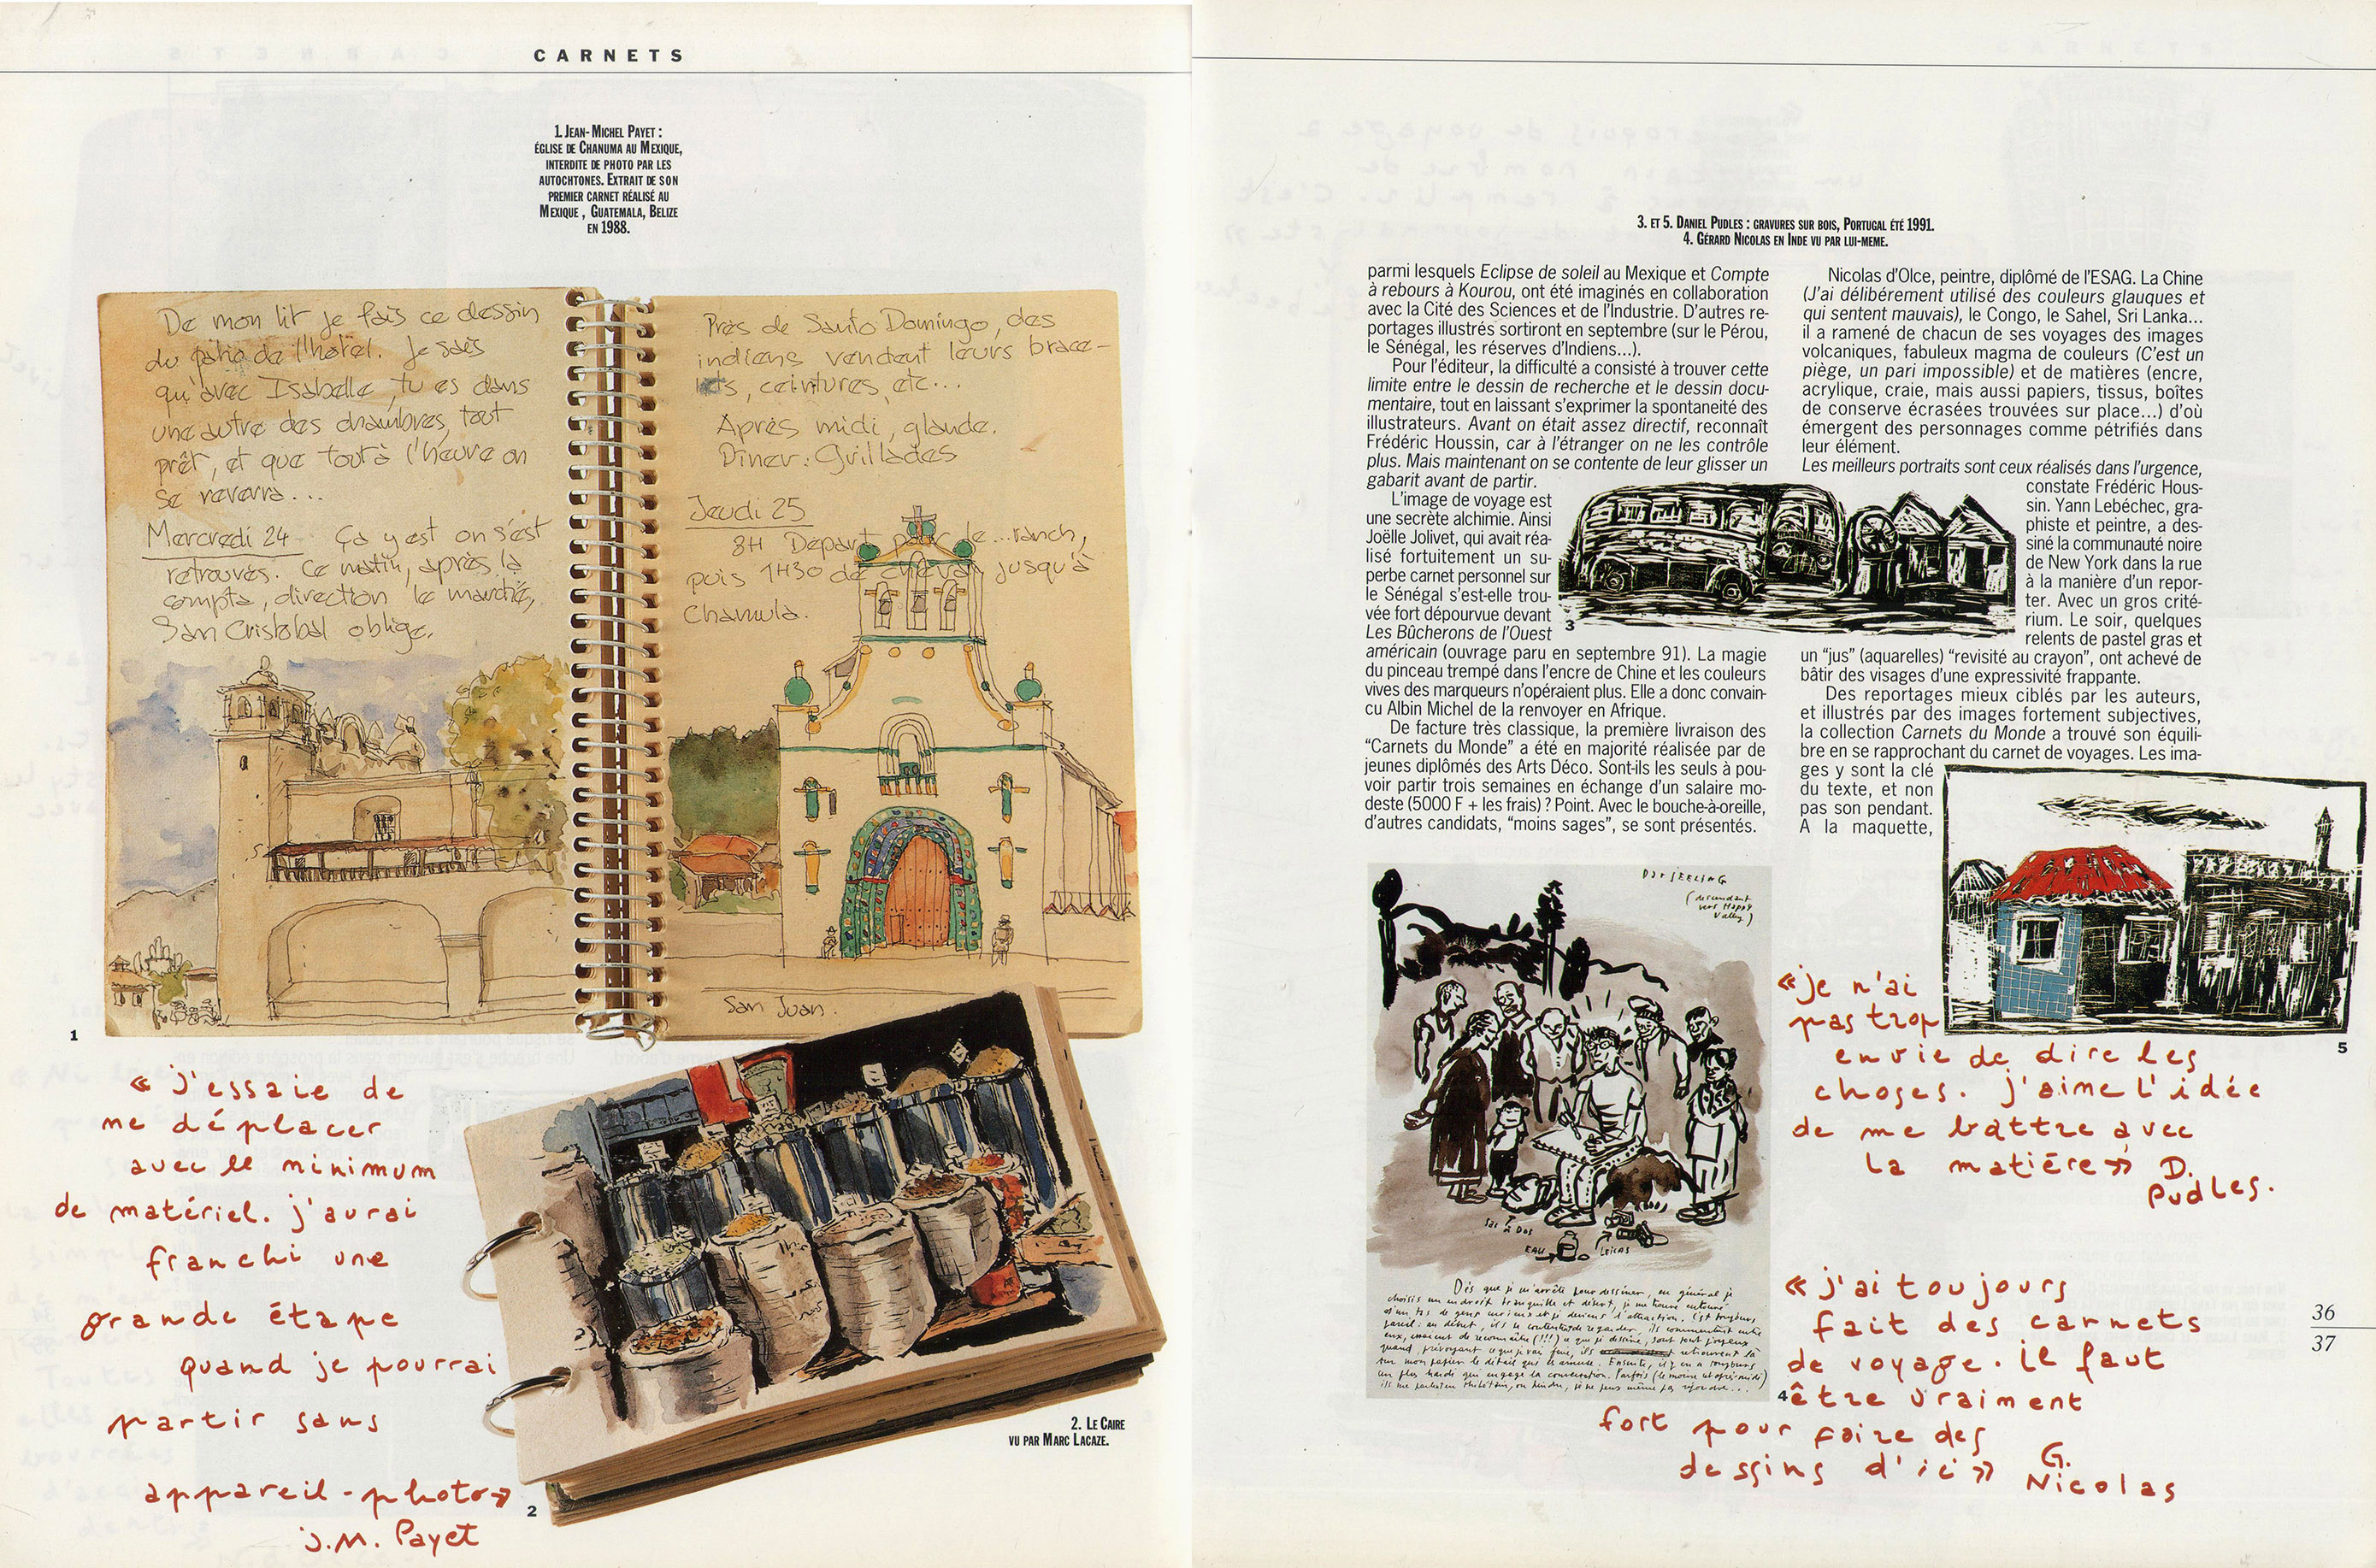 CARNETS
1. JEAN-MICHEL PAYET :
ÉGLISE DE CHANUMA AU MEXIQUE,
INTERDITE DE PHOTO PAR LES
AUTOCHTONES. EXTRAIT DE SON
PREMIER CARNET RÉALISÉ AU
MEXIQUE, GUATEMALA, BELIZE
EN 1988.
De mon lit je fais ce dessin
du patio de l'hôtel. Je sais
qu'avec Isabelle, tu es dans
une autre des chambres, tout
prêt, et que tout à l'heure on
se reverra...
Mercredi 24 Ça y est on s'est
retrouvés. Ce matin, après la
compta, direction le marché,
San Cristobal oblige.
Près de Santo Domingo, des
indiens vendent leurs brace-
lets, ceintures, etc...
Après midi, glande.
Dîner : Grillades
Jeudi 25
8H Départ pour le...ranch,
puis 1H30 de cheval jusqu'à
Chamula.
San Juan.
1
« j'essaie de
me déplacer
avec le minimum
de matériel. j'aurai
franchi une
grande étape
quand je pourrai
partir sans
appareil-photo»
J.M. Payet
2
2. LE CAIRE
VU PAR MARC LACAZE.
3. ET 5. DANIEL PUDLES : GRAVURES SUR BOIS, PORTUGAL ÉTÉ 1991.
4. GÉRARD NICOLAS EN INDE VU PAR LUI-MEME.
parmi lesquels Eclipse de soleil au Mexique et Compte
à rebours à Kourou, ont été imaginés en collaboration
avec la Cité des Sciences et de l'Industrie. D'autres re-
portages illustrés sortiront en septembre (sur le Pérou,
le Sénégal, les réserves d'Indiens...).
Pour l'éditeur, la difficulté a consisté à trouver cette
limite entre le dessin de recherche et le dessin docu-
mentaire, tout en laissant s'exprimer la spontaneité des
illustrateurs. Avant on était assez directif, reconnaît
Frédéric Houssin, car à l'étranger on ne les contrôle
plus. Mais maintenant on se contente de leur glisser un
gabarit avant de partir.
L'image de voyage est
une secrète alchimie. Ainsi
Joëlle Jolivet, qui avait réa-
lisé fortuitement un su-
perbe carnet personnel sur
le Sénégal s'est-elle trou-
vée fort dépourvue devant
Les Bûcherons de l'Ouest
américain (ouvrage paru en septembre 91). La magie
du pinceau trempé dans l'encre de Chine et les couleurs
vives des marqueurs n'opéraient plus. Elle a donc convain-
cu Albin Michel de la renvoyer en Afrique.
De facture très classique, la première livraison des
"Carnets du Monde" a été en majorité réalisée par de
jeunes diplômés des Arts Déco. Sont-ils les seuls à pou-
voir partir trois semaines en échange d'un salaire mo-
deste (5000 F + les frais) ? Point. Avec le bouche-à-oreille,
d'autres candidats, "moins sages", se sont présentés.
Nicolas d'Olce, peintre, diplômé de l'ESAG. La Chine
(J'ai délibérement utilisé des couleurs glauques et
qui sentent mauvais), le Congo, le Sahel, Sri Lanka...
il a ramené de chacun de ses voyages des images
volcaniques, fabuleux magma de couleurs (C'est un
piège, un pari impossible) et de matières (encre,
acrylique, craie, mais aussi papiers, tissus, boîtes
de conserve écrasées trouvées sur place...) d'où
émergent des personnages comme pétrifiés dans
leur élément.
Les meilleurs portraits sont ceux réalisés dans l'urgence,
constate Frédéric Hous-
sin. Yann Lebéchec, gra-
phiste et peintre, a des-
siné la communauté noire
de New York dans la rue
à la manière d'un repor-
ter. Avec un gros crité-
rium. Le soir, quelques
relents de pastel gras et
un "jus" (aquarelles) "revisité au crayon", ont achevé de
bâtir des visages d'une expressivité frappante.
Des reportages mieux ciblés par les auteurs,
et illustrés par des images fortement subjectives,
la collection Carnets du Monde a trouvé son équili-
bre en se rapprochant du carnet de voyages. Les ima-
ges y sont la clé
du texte, et non
pas son pendant.
A la maquette,
3
5
DARJEELING
(descendant
vers Happy
Valley)
Sac à Dos
EAU
LEICAS
Dès que je m'arrête pour dessiner, en général je
choisis un endroit tranquille et désert, je me trouve entouré
d'un tas de gens curieux et je deviens l'attraction. C'est toujours
pareil : au début, ils se contentent de regarder, ils commentent entre
eux, essaient de reconnaître (!!!) ce que je dessine, sont tout joyeux
quand, prévoyant ce que je vais faire, ils retrouvent là
sur mon papier le détail qui les amuse. Ensuite, il y en a toujours
un plus hardi qui engage la conversation. Parfois (le moine cet après-midi)
ils me parlent en tibétain, ou hindu, je ne peux même pas répondre...
4
«je n'ai
pas trop
envie de dire les
choses. j'aime l'idée
de me battre avec
la matière» D.
Pudles.
« j'ai toujours
fait des carnets
de voyage. il faut
être vraiment
fort pour faire des
dessins d'ici» G.
Nicolas
36
37